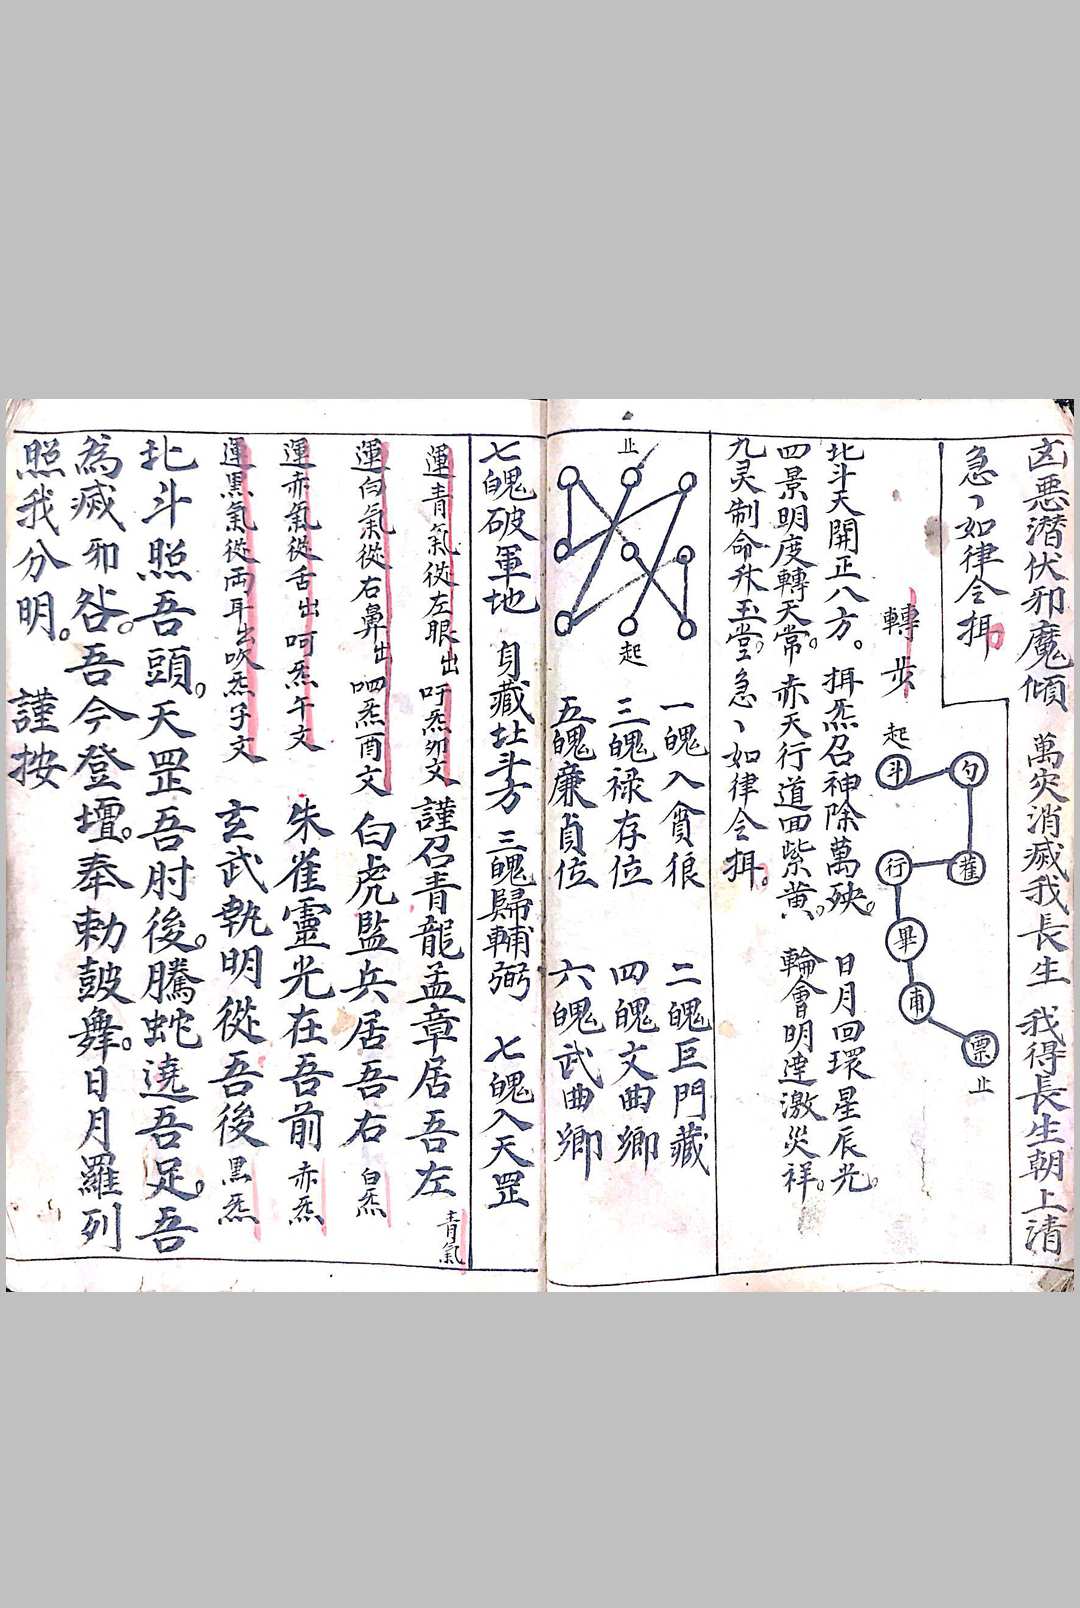 凶悪潛伏邪魔傾　萬灾消滅我長生　我得長生朝上清
急丶如律令揖
轉步
起
斗
勺
行
畢
甫
票
止
北斗天開正八方。揖炁召神除萬殃。日月回環星辰光。
四景明度轉天常。赤天行道回紫黄。輪會明達激災祥。
九灵制命升玉堂。急丶如律令揖。
止
起
一魄入貪狼　二魄巨門藏
三魄禄存位　四魄文曲鄉
五魄廉貞位　六魄武曲鄉
七魄破軍地　身藏北斗方　三魄歸輔弼　七魄入天罡
運青氣從左眼出吁炁卯文　謹召青龍孟章居吾左　青氣
運白氣從右鼻出呬炁酉文　白虎監兵居吾右　白炁
運赤氣從舌出呵炁午文　朱雀靈光在吾前　赤炁
運黑氣從両耳出吹炁子文　玄武執明從吾後　黑炁
北斗照吾頭。天罡吾肘後。騰蛇遶吾足。吾
為滅邪咎。吾今登壇。奉勅鼓舞。日月羅列
照我分明。　謹按